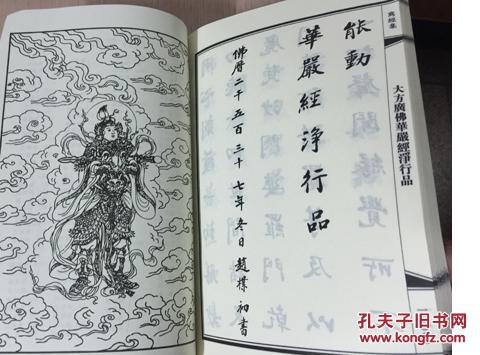 寫經集
大方廣佛華嚴經淨行品
能動
華嚴經淨行品
佛曆二千五百三十七年冬日趙樸初書
孔夫子旧书网